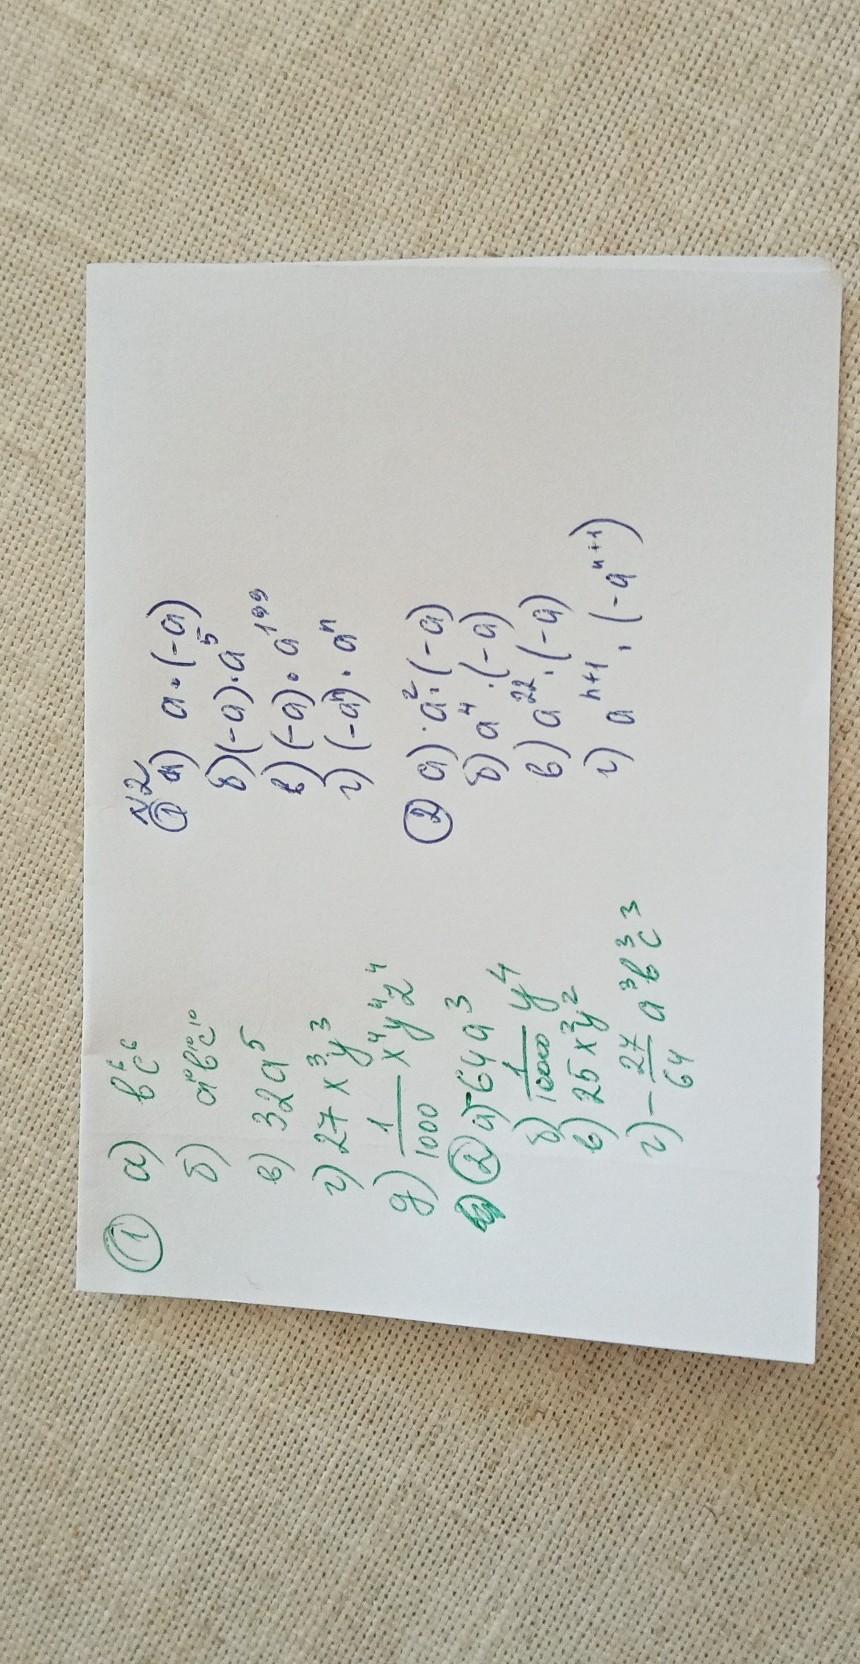 ① а) b⁶c⁶
б) a¹⁰b¹⁰c¹⁰
в) 32a⁵
г) 27x³y³
д) 1/1000 x⁴y⁴z⁴
② а) -64a³
б) 1/10000 y⁴
в) 25x²y²
г) -27/64 a³b³c³
N2
① а) a·(-a)
б) (-a)·a⁵
в) (-a)·a¹⁹⁹
г) (-aⁿ)·aⁿ
② а) a²·(-a)
б) a⁴·(-a)
в) a²²·(-a)
г) aⁿ⁺¹·(-aⁿ⁺¹)